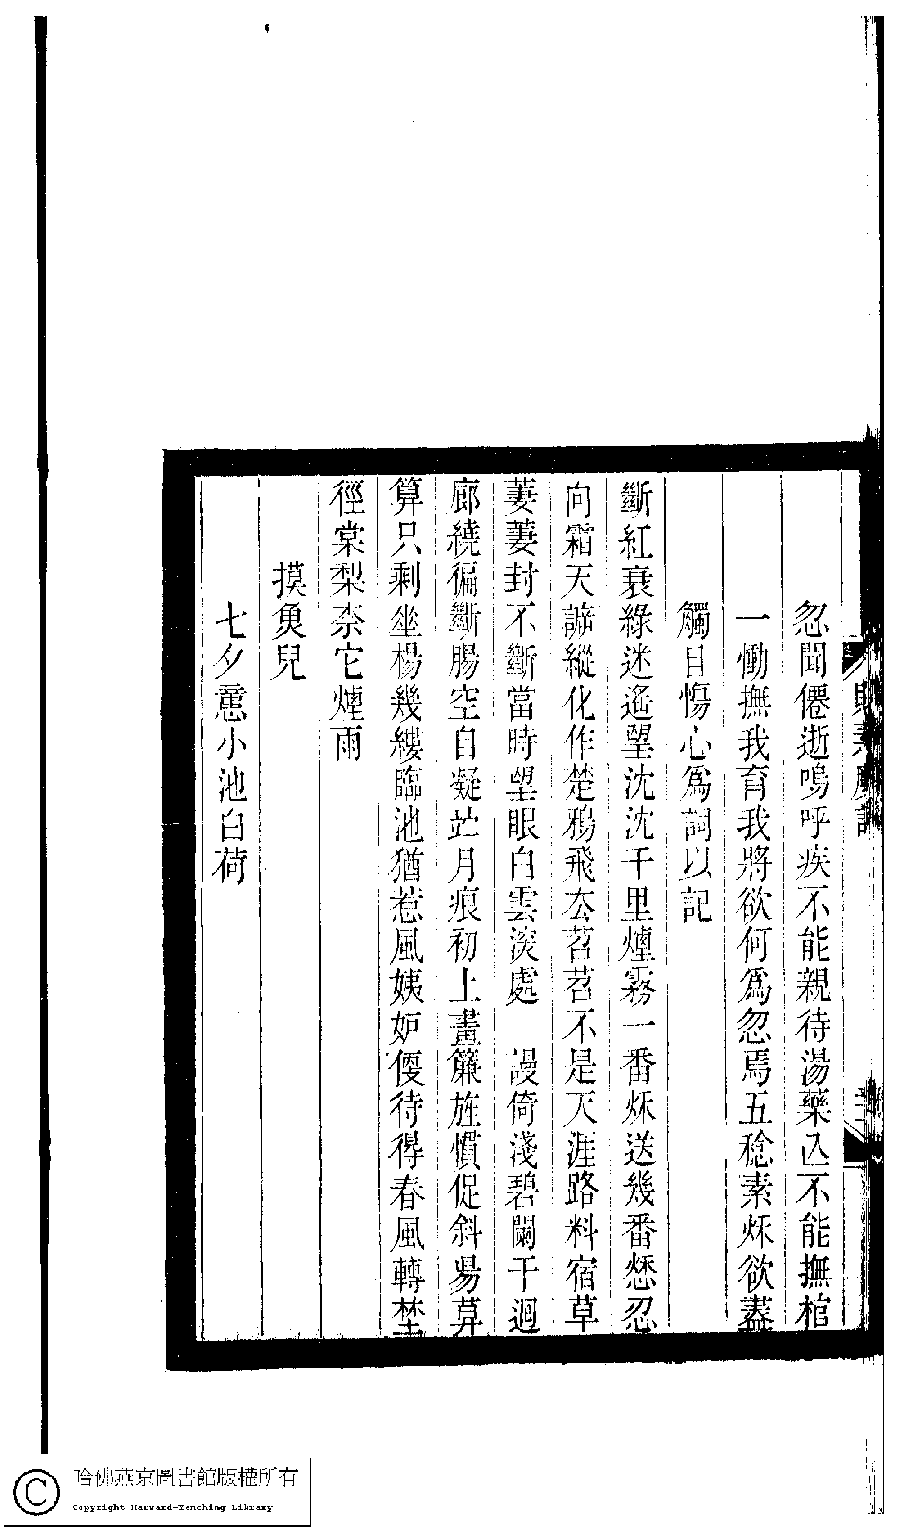 忽聞僊逝嗚呼疾不能親待湯藥亾不能撫棺
一慟撫我育我將欲何爲忽焉五稔素秌欲藎
觸目慯心爲詞以記
斷紅衰綠迷遙朢沈沈千里煙霧一番秌送幾番愁忍
向霜天諦縱化作楚鴉飛厺苕苕不是天涯路料宿草
萋萋封不斷當時朢眼白雲淡處　謾倚淺碧闌干迴
廊繞徧斷腸空自凝竚月痕初上畫簾旌慣促斜昜莫
算只剩垂楊幾縷臨池猶惹風姨妒便待得春風轉埜
徑棠梨柰它煙雨
摸魚兒
七夕憶小池白荷
哈佛燕京圖書館版權所有
Copyright Harvard-Yenching Library